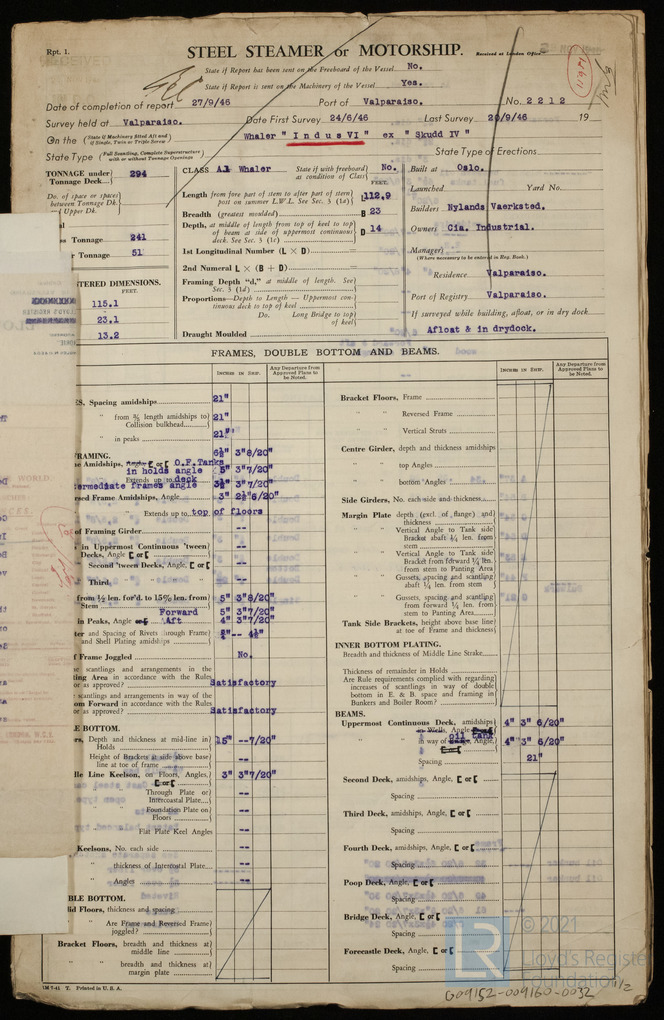 Rpt. 1.
STEEL STEAMER or MOTORSHIP.
Received at London Office
State if Report has been sent on the Freeboard of the Vessel No.
State if Report is sent on the Machinery of the Vessel Yes.
Date of completion of report 27/9/46 Port of Valparaiso. No. 2212
Survey held at Valparaiso. Date First Survey 24/6/46 Last Survey 20/9/46 19
On the (State if Machinery fitted Aft and if Single, Twin or Triple Screw) Whaler "Indus VI" ex "Skudd IV"
State Type (Full Scantling, Complete Superstructure with or without Tonnage Openings
State Type of Erections
TONNAGE under Tonnage Deck 294
Do. of space or spaces between Tonnage Dk. Upper Dk.
Tonnage 241
Tonnage 51
TERED DIMENSIONS.
FEET.
115.1
23.1
13.2
CLASS A1 Whaler State if with freeboard as condition of Class No.
FEET.
Length from fore part of stem to after part of stern post on summer L.W.L. See Sec. 3 (1a) L 112.9
Breadth (greatest moulded) B 23
Depth, at middle of length from top of keel to top of beam at side of uppermost continuous deck. See Sec. 3 (1c) D 14
1st Longitudinal Number (L × D)
2nd Numeral L × (B + D)
Framing Depth "d," at middle of length. See Sec. 3 (1d)
Proportions—Depth to Length—Uppermost continuous deck to top of keel
Do. Long Bridge to top of keel
Draught Moulded
Built at Oslo.
Launched Yard No.
Builders Nylands Vaerksted.
Owners Cia. Industrial.
Manager
(Where necessary to be entered in Reg. Book.)
Residence Valparaiso.
Port of Registry Valparaiso.
If surveyed while building, afloat, or in dry dock
Afloat & in drydock.
FRAMES, DOUBLE BOTTOM AND BEAMS.
INCHES IN SHIP.
Any Departure from Approved Plans to be Noted.
INCHES IN SHIP.
Any Departure from Approved Plans to be Noted.
ES, Spacing amidships 21"
" from ⅗ length amidships to Collision bulkhead 21"
" in peaks 21"
FRAMING.
Amidships, Angle or O.F. Tanks 6½" 3"8/20"
in holds angle 5" 3"7/20"
Extends up to deck
termediate frames angle 3½" 3"7/20"
sed Frame Amidships, Angle 3" 2½"6/20"
Extends up to top of floors
of Framing Girder --
in Uppermost Continuous 'tween Decks, Angle or --
Second 'tween Decks, Angle or --
Third " " " --
from ½ len. for'd. to 15% len. from Stem 5" 3"8/20"
Forward 5" 3"7/20"
in Peaks, Angle or Aft 4" 3"7/20"
ter and Spacing of Rivets through Frame and Shell Plating amidships
Frame Joggled No.
scantlings and arrangements in the ing Area in accordance with the Rules or as approved? Satisfactory
scantlings and arrangements in way of the om Forward in accordance with the Rules or as approved? Satisfactory
E BOTTOM.
rs, Depth and thickness at mid-line in Holds 15" --7/20"
Height of Brackets at side above base line at toe of frame --
le Line Keelson, on Floors, Angles, or 3" 3"7/20"
" Through Plate or Intercostal Plate --
" Foundation Plate on Floors --
" Flat Plate Keel Angles --
Keelsons, No. each side --
" thickness of Intercostal Plate --
" Angles --
BLE BOTTOM.
lid Floors, thickness and spacing
" Are Frame and Reversed Frame joggled?
Bracket Floors, breadth and thickness at middle line
" breadth and thickness at margin plate
Bracket Floors, Frame
" " Reversed Frame
" " Vertical Struts
Centre Girder, depth and thickness amidships
" top Angles
" bottom Angles
Side Girders, No. each side and thickness
Margin Plate depth (excl. of flange) and thickness
" Vertical Angle to Tank side Bracket abaft ¼ len. from stem
" Vertical Angle to Tank side Bracket from forward ¼ len. from stem to Panting Area
" Gussets, spacing and scantling abaft ¼ len. from stem
" Gussets, spacing and scantling from forward ¼ len. from stem to Panting Area
Tank Side Brackets, height above base line at toe of Frame and thickness
INNER BOTTOM PLATING.
Breadth and thickness of Middle Line Strake
Thickness of remainder in Holds
Are Rule requirements complied with regarding increases of scantlings in way of double bottom in E. & B. space and framing in Bunkers and Boiler Room?
BEAMS.
Uppermost Continuous Deck, amidships 4" 3" 6/20"
in Wells, Angle or
in way of oil tank Angle, 4" 3" 6/20"
Spacing 21"
Second Deck, amidships, Angle, or
Spacing
Third Deck, amidships, Angle, or
Spacing
Fourth Deck, amidships, Angle, or
Spacing
Poop Deck, Angle, or
Spacing
Bridge Deck, Angle, or
Spacing
Forecastle Deck, Angle, or
Spacing
Printed in U. S. A.
© 2021
Lloyd's Register
Foundation
LR
G09152-009160-0032 1/2